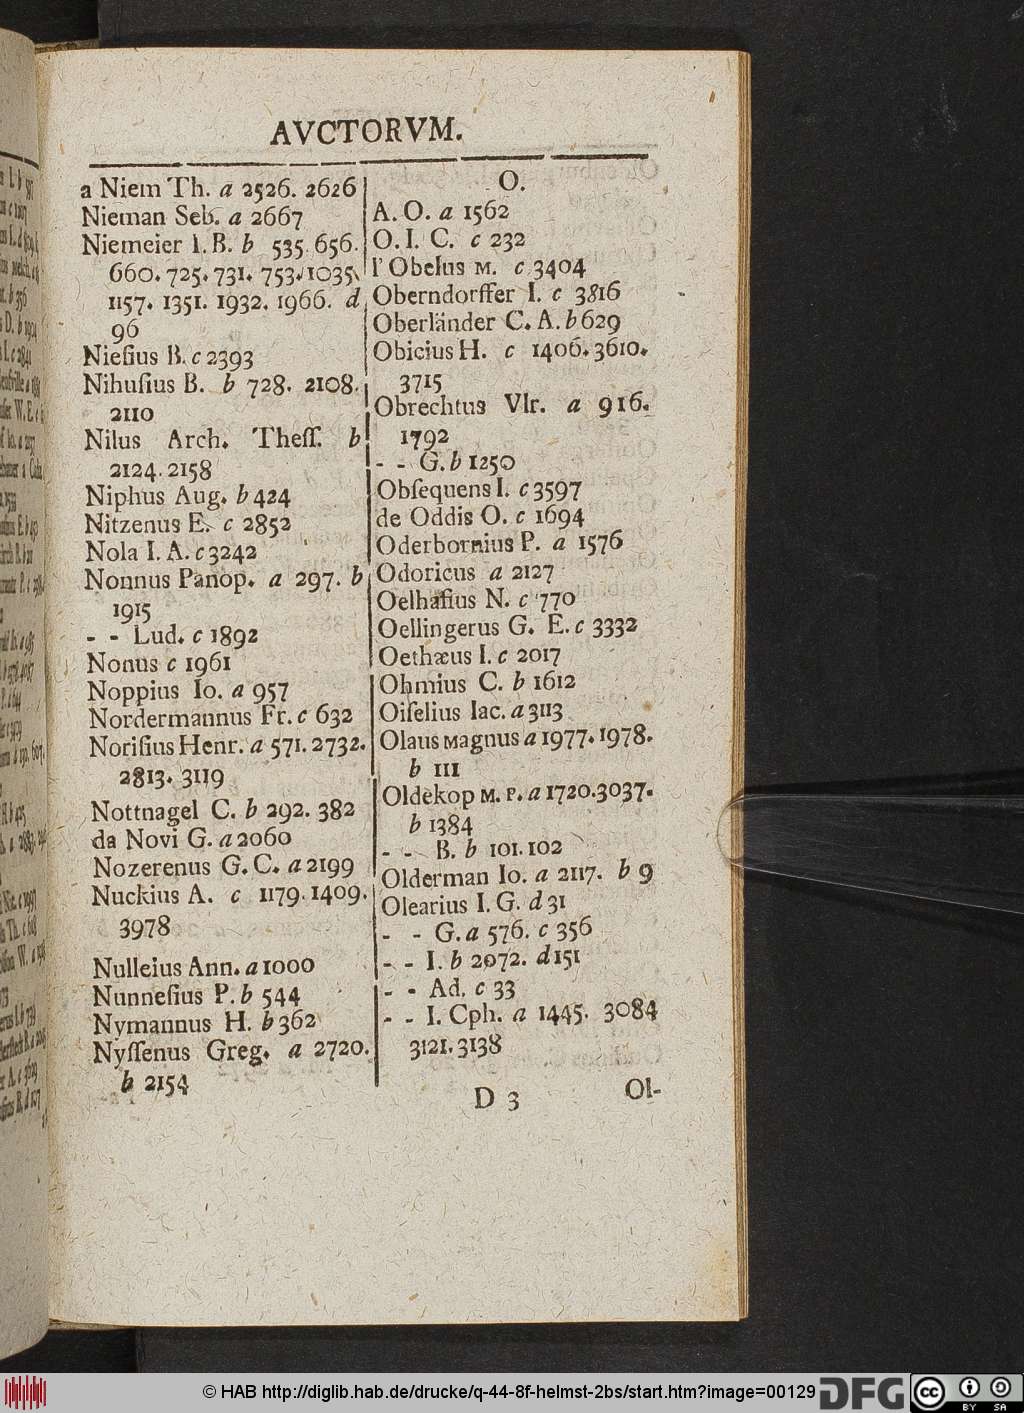 AVCTORVM.
a Niem Th. a 2526. 2626
Nieman Seb. a 2667
Niemeier I. B. b 535. 656.
660. 725. 731. 753. 1035.
1157. 1351. 1932. 1966. d
96
Nieſius B. c 2393
Nihuſius B. b 728. 2108.
2110
Nilus Arch. Theſſ. b
2124. 2158
Niphus Aug. b 424
Nitzenus E. c 2852
Nola I. A. c 3242
Nonnus Panop. a 297. b
1915
- - Lud. c 1892
Nonus c 1961
Noppius Io. a 957
Nordermannus Fr. c 632
Noriſius Henr. a 571. 2732.
2813. 3119
Nottnagel C. b 292. 382
da Novi G. a 2060
Nozerenus G. C. a 2199
Nuckius A. c 1179. 1409.
3978
Nulleius Ann. a 1000
Nunneſius P. b 544
Nymannus H. b 362
Nyſſenus Greg. a 2720.
b 2154
O.
A. O. a 1562
O. I. C. c 232
l' Obelus M. c 3404
Oberndorffer I. c 3816
Oberländer C. A. b 629
Obicius H. c 1406. 3610.
3715
Obrechtus Vlr. a 916.
1792
- - G. b 1250
Obſequens I. c 3597
de Oddis O. c 1694
Oderbornius P. a 1576
Odoricus a 2127
Oelhafius N. c 770
Oellingerus G. E. c 3332
Oethæus I. c 2017
Ohmius C. b 1612
Oiſelius Iac. a 3113
Olaus Magnus a 1977. 1978.
b 111
Oldekop M. P. a 1720. 3037.
b 1384
- - B. b 101. 102
Olderman Io. a 2117. b 9
Olearius I. G. d 31
- - G. a 576. c 356
- - I. b 2072. d 151
- - Ad. c 33
- - I. Cph. a 1445. 3084
3121. 3138
D 3 Ol-
© HAB http://diglib.hab.de/drucke/q-44-8f-helmst-2bs/start.htm?image=00129
DFG
cc BY SA